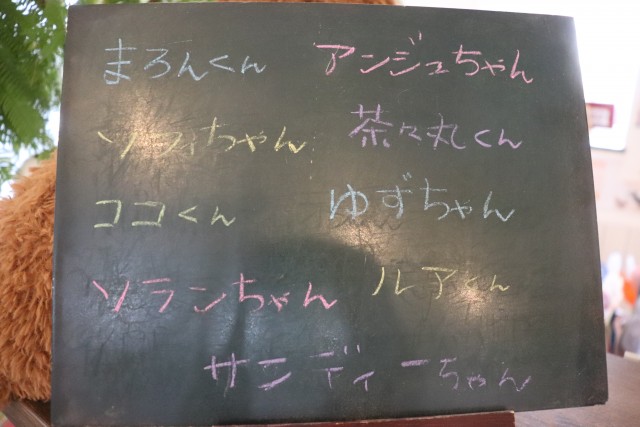 まろんくん アンジュちゃん
ソフィちゃん 茶々丸くん
ココくん ゆずちゃん
ソランちゃん ルアくん
サンディーちゃん